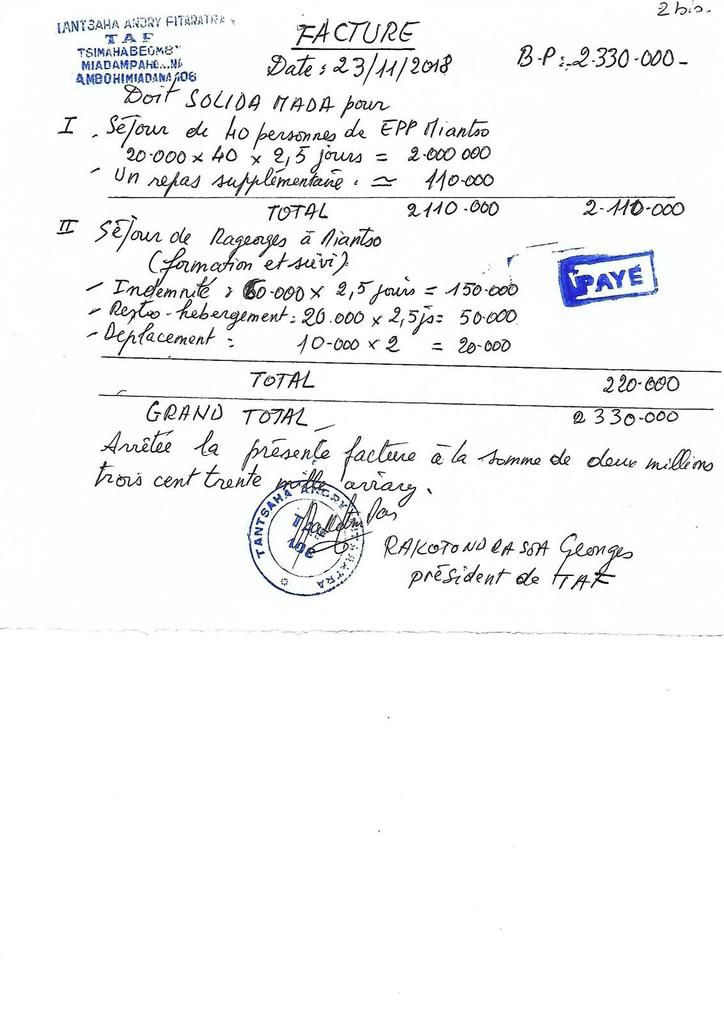 2 bis.
TANTSAHA ANDRY FITARATRA
TAF
TSIMAHABEOMBY
MIADAMPAHO...NI
AMBOHIMIADANA 106
FACTURE
Date : 23/11/2018
B.P : 2.330.000-
Doit SOLIDA MADA pour
I . Séjour de 40 personnes de EPP Miantso
20.000 x 40 x 2,5 jours = 2.000 000
- Un repas supplémentaire . ≃ 110.000
TOTAL 2110.000 2.110.000
II Séjour de Rageorges à Miantso
(formation et suivi)
- Indemnité : 60.000 x 2,5 jours = 150.000
- Resto-hébergement : 20.000 x 2,5 js = 50.000
- Deplacement : 10.000 x 2 = 20.000
PAYÉ
TOTAL 220.000
GRAND TOTAL 2 330.000
Arrêtée la présente facture à la somme de deux millions
trois cent trente mille ariary.
TANTSAHA ANDRY FITARATRA
TAF
106
RAKOTONDRASOA Georges
président de TAF